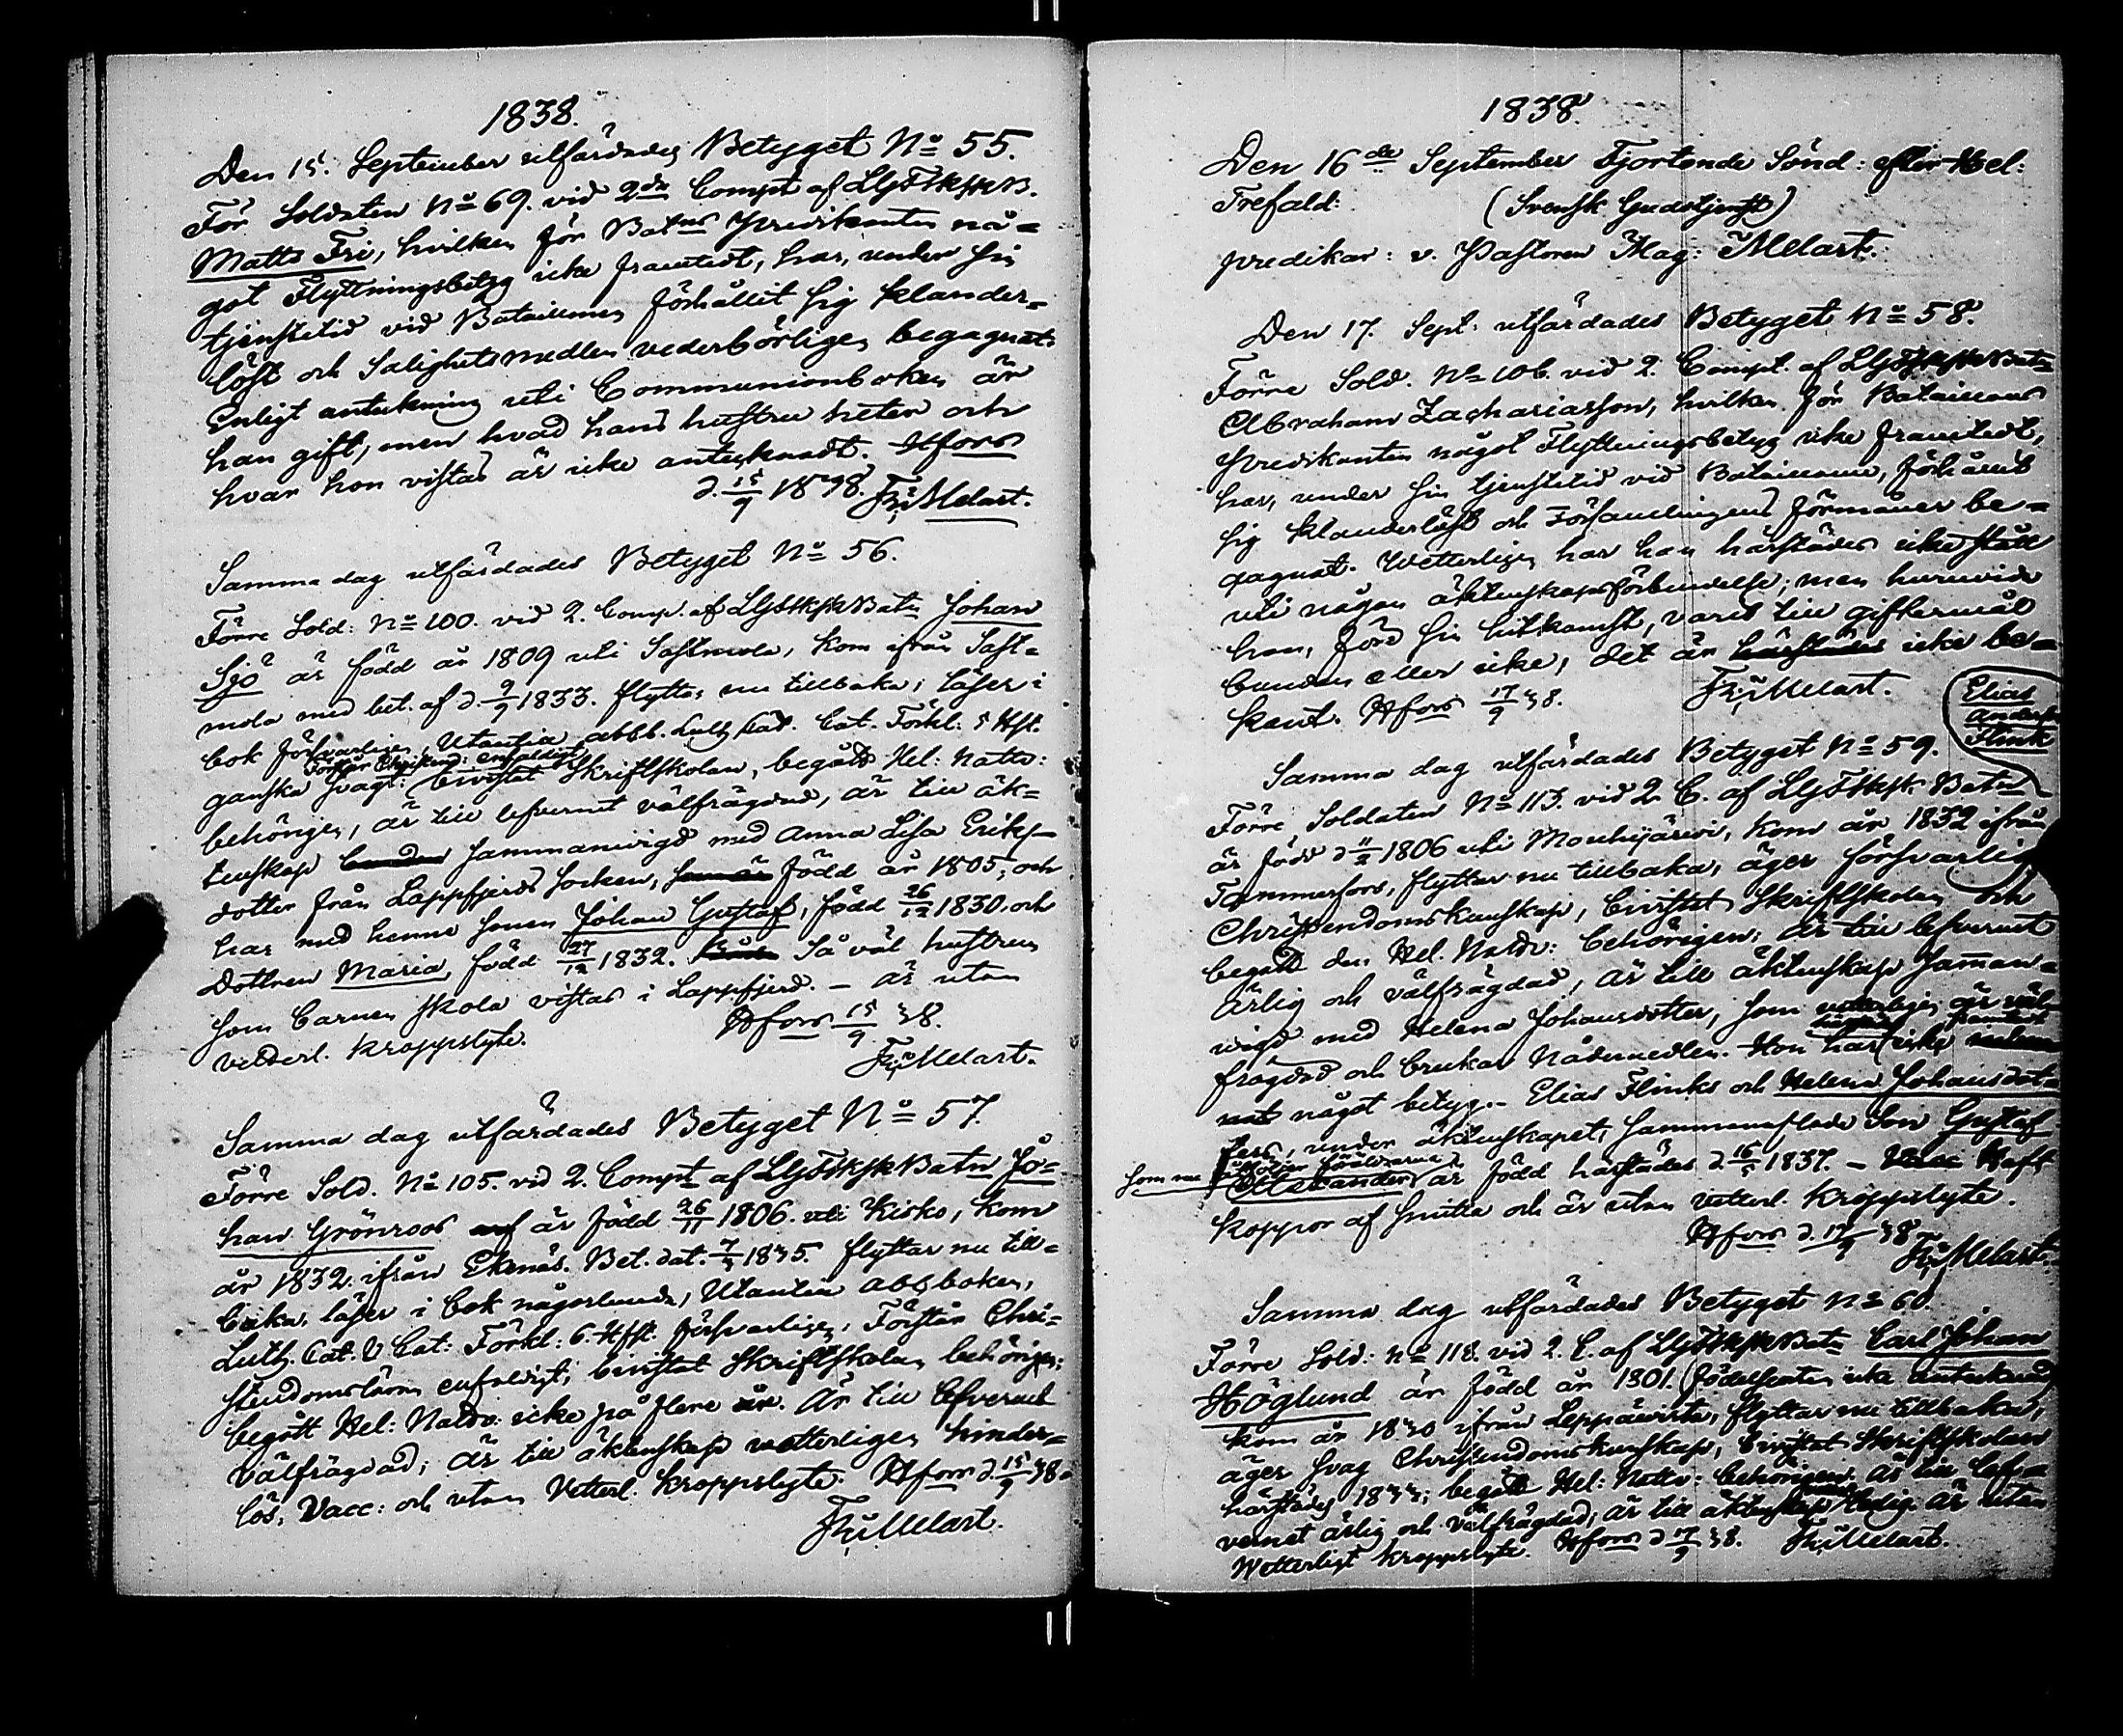 1838.
Den 15. September utfärdades Betyget No 55.
För Soldaten No 69. vid 2dra Compt af LGdFskskB.
Matts Fri, hvilken för Batns Predikanten nå-
got Flyttningsbetyg icke framtedt, har, under sin
tjenstetid vid Bataillonen förhållit sig klander-
löst och Salighetsmedlen vederbörligen begagnat.
Enligt anteckning uti Communionboken är
han gift, men hvad hans hustru heter och
hvar hon vistas är icke antecknadt. Hfors
d. 15/9 1838. Melart.
Samma dag utfärdades Betyget No 56.
Förre Sold: No 100. vid 2. Comp. af Batn Johan
Sjö är född år 1809 uti Sastmola, kom ifrån Sast-
mola med bet. af d 9/9 1833. flyttar nu tillbaka; läser i
bok försvarligen, Utantia abbb. Luth Cat. Cat. Förkl: 5 Hft.
Förstår Christend: enfaldigt
ganska svagt: bivistat Skriftskolan, begått Hel: Nattv:
behörigen, är till lefvernet välfrägdad, är till äk-
tenskap sammanvigd med Anna Lisa Eriks-
dotter från Lappfjerds Socken, som är född år 1805, och
har med henne sonen Johan Gustaf, född 26/12 1830. och
dottren Maria, född 27/12 1832. Så väl hustrun
som barnen skola vistas i Lappfjerd. – är utan
vetterl. kroppslyte. Hfors 15/9 38.
Melart.
Samma dag utfärdades Betyget No 57.
Förre Sold. No 105. vid 2. Compt af Batn Jo-
han Grönroos af är född 26/11 1806. uti Kisko, kom
år 1832. ifrån Ekenäs. Bet. dat. 7/3 1835. flyttar nu till-
baka. läser i bok någorlunda, Utantia abbboken,
Luth. Cat. & Cat: Förkl: 6. Hfst. försvarligen. Förstår Chri-
stendomsläran enfaldigt; bivistat Skriftskolan behörigen;
begått Hel: Nattv: icke på flere år. Är till lefvernet
välfrägdad; är till äktenskap vetterligen hinder-
lös, Vacc: och utan Vetterl. kroppslyte. Hfors d. 15/9 38.
Melart.
1838.
Den 16de September Fjortonde Sönd: efter Hel:
Trefald: (Svensk Gudstjenst)
predikar: v. Pastoren Mag: Melart.
Den 17. Sept: utfärdades Betyget No 58.
Förre Sold. No 106. vid 2. Compt. af Batn
Abraham Zachariasson, hvilken för Bataillons
Predikanten något Flyttningsbetyg icke framtedt,
har, under sin tjenstetid vid Bataillonen, förhållit
sig klanderlöst och Församlingens förmåner be-
gagnat. Wetterligen har han härstädes icke stått
uti någon äktenskapsförbindelse; men huruvida
han, förr sin hitkomst, varit till giftermål
bunden eller icke, det är härstädes icke be-
kant. Hfors 17/9 38. Melart.
Elias
Anders
Flink
Samma dag utfärdades Betyget No 59.
Förre Soldaten No 113. vid 2. C. af Batn
är född d 11/2 1806 uti Mouhijärvi, kom år 1832 ifrån
Tammerfors, flyttar nu tillbaka, äger försvarlig
Christendomskunskap, bivistat Skriftskolan och
begått den Hel. Nattv: behörigen; är till lefvernet
ärlig och välfrägdad, är till äktenskap samman-
vigd med Helena Johansdotter, som vetterligen är väl-
frägdad och brukar Nådemedlen. Hon har icke
något betyg. – Elias Flinks och Helena Johansdot-
ters, under äktenskapet sammanaflade Son Gustaf
som nu följer föräldrarne
Alexander, är född härstädes d. 16/5 1837. – Haft
koppor af smitta och är utan vetterl. kroppslyte.
Hfors d. 17/9 38.
Melart.
Samma dag utfärdades Betyget No 60.
Förre Sold: No 118. vid 2. C. af Batn Carl Johan
Höglund är född år 1801. (födelseorten icke antecknad)
kom år 1830 ifrån Leppävirta, flyttar nu tillbaka;
äger svag Christendomskunskap, bivistat Skriftskolan
härstädes 1833; begått Hel: Nattv: behörigen. är till lef-
vernet ärlig och välfrägdad; är till äktenskap ledig. är utan
Wetterligt kroppslyte. Hfors d 17/9 38. Melart.